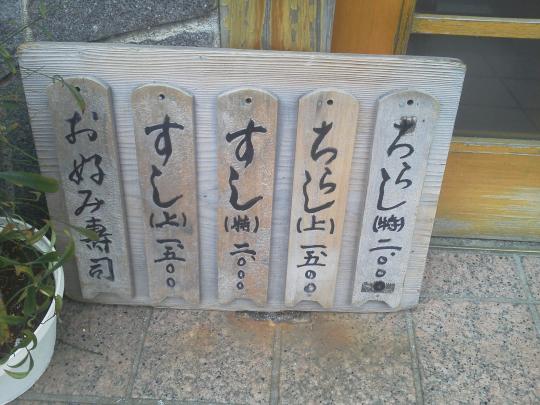 ちらし(特)二、〇〇〇
ちらし(上)一、五〇〇
すし(特)二、〇〇〇
すし(上)一、五〇〇
お好み寿司